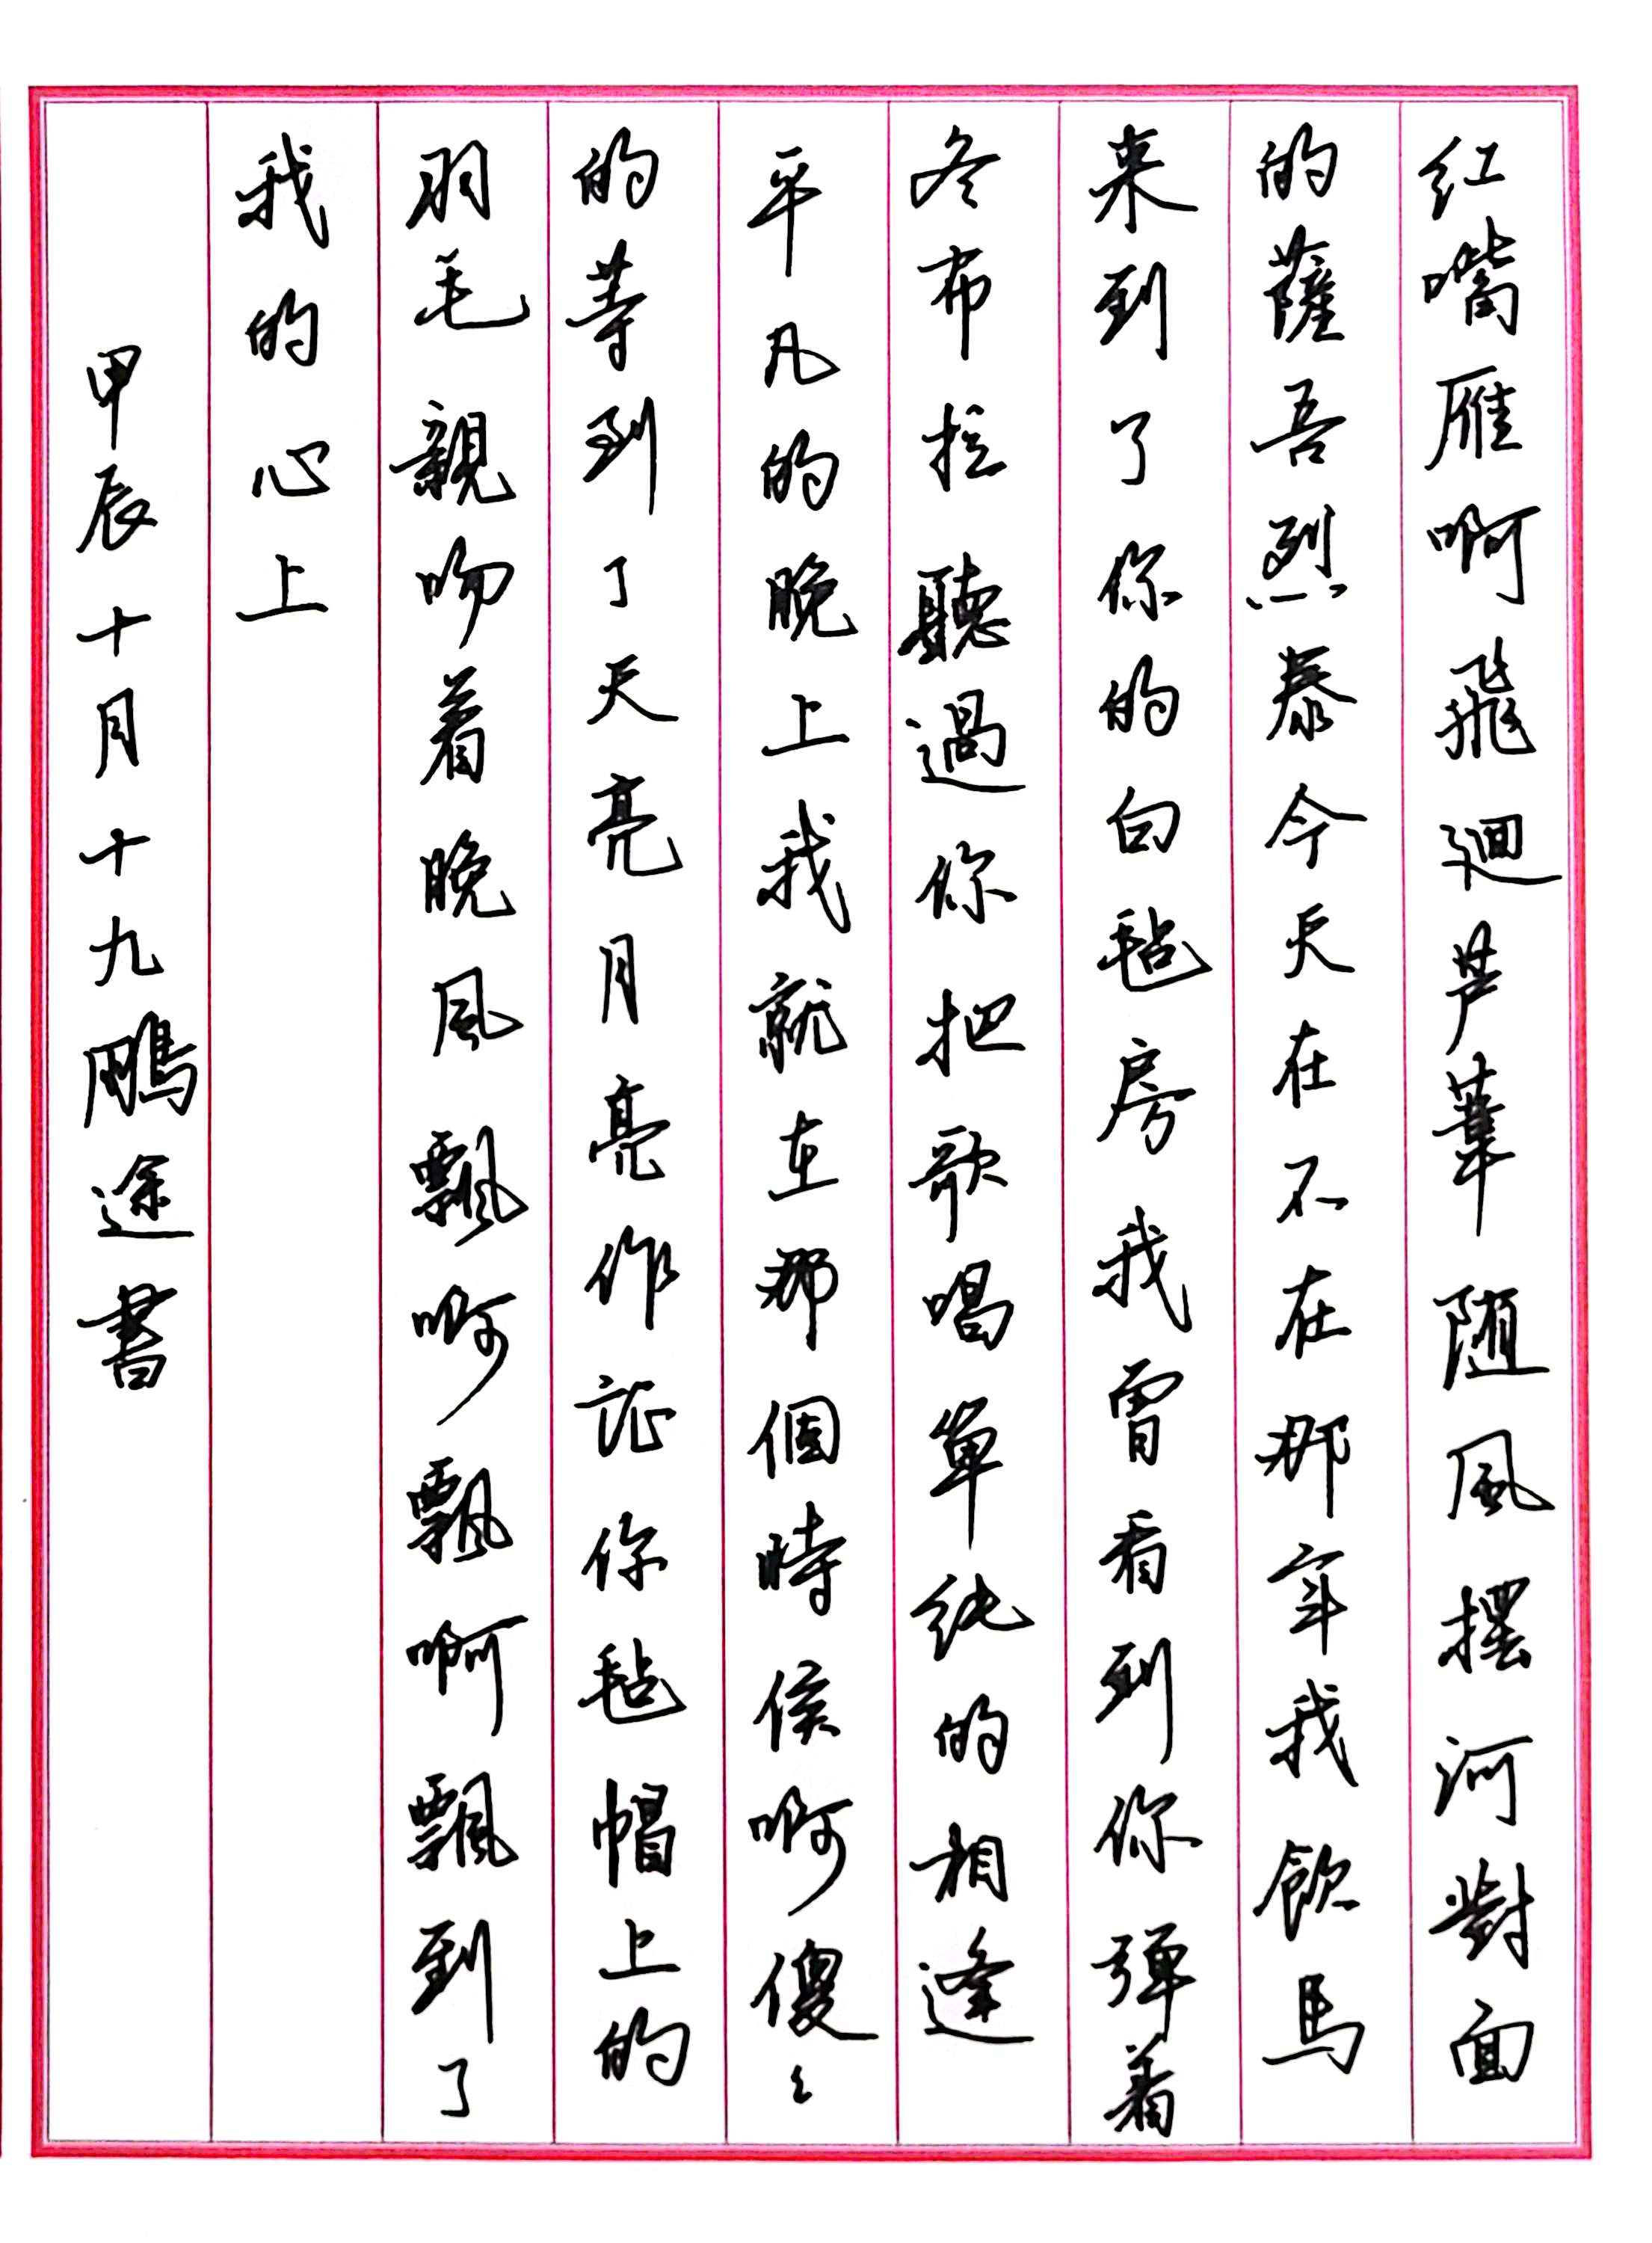 红嘴雁啊飛迴芦葦随風摆河對面
的薩吾烈泰今天在不在那年我飲馬
来到了你的白毡房我曾看到你弹着
冬布拉聽過你把歌唱单纯的相逢
平凡的晚上我就在那個時候啊傻々
的等到了天亮月亮作证你毡帽上的
羽毛親吻着晚風飄啊飄啊飄到了
我的心上
甲辰十月十九鵬途書